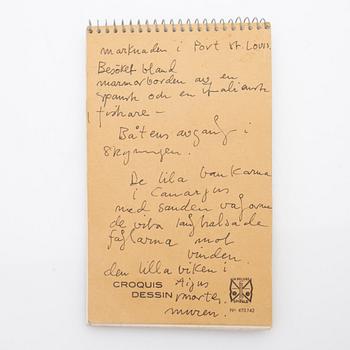 marknaden i Port St Louis.
Besöket bland
marmorborden av en
spansk och en italiensk
fiskare —
Båtens avgång i
skymningen.
De lila bankarna
i Camargus
med sanden vågorna
de vita långhalsade
fåglarna mot
vinden.
den lilla viken i
Aigus
mortes
muren.
CROQUIS
DESSIN
Nº 672742